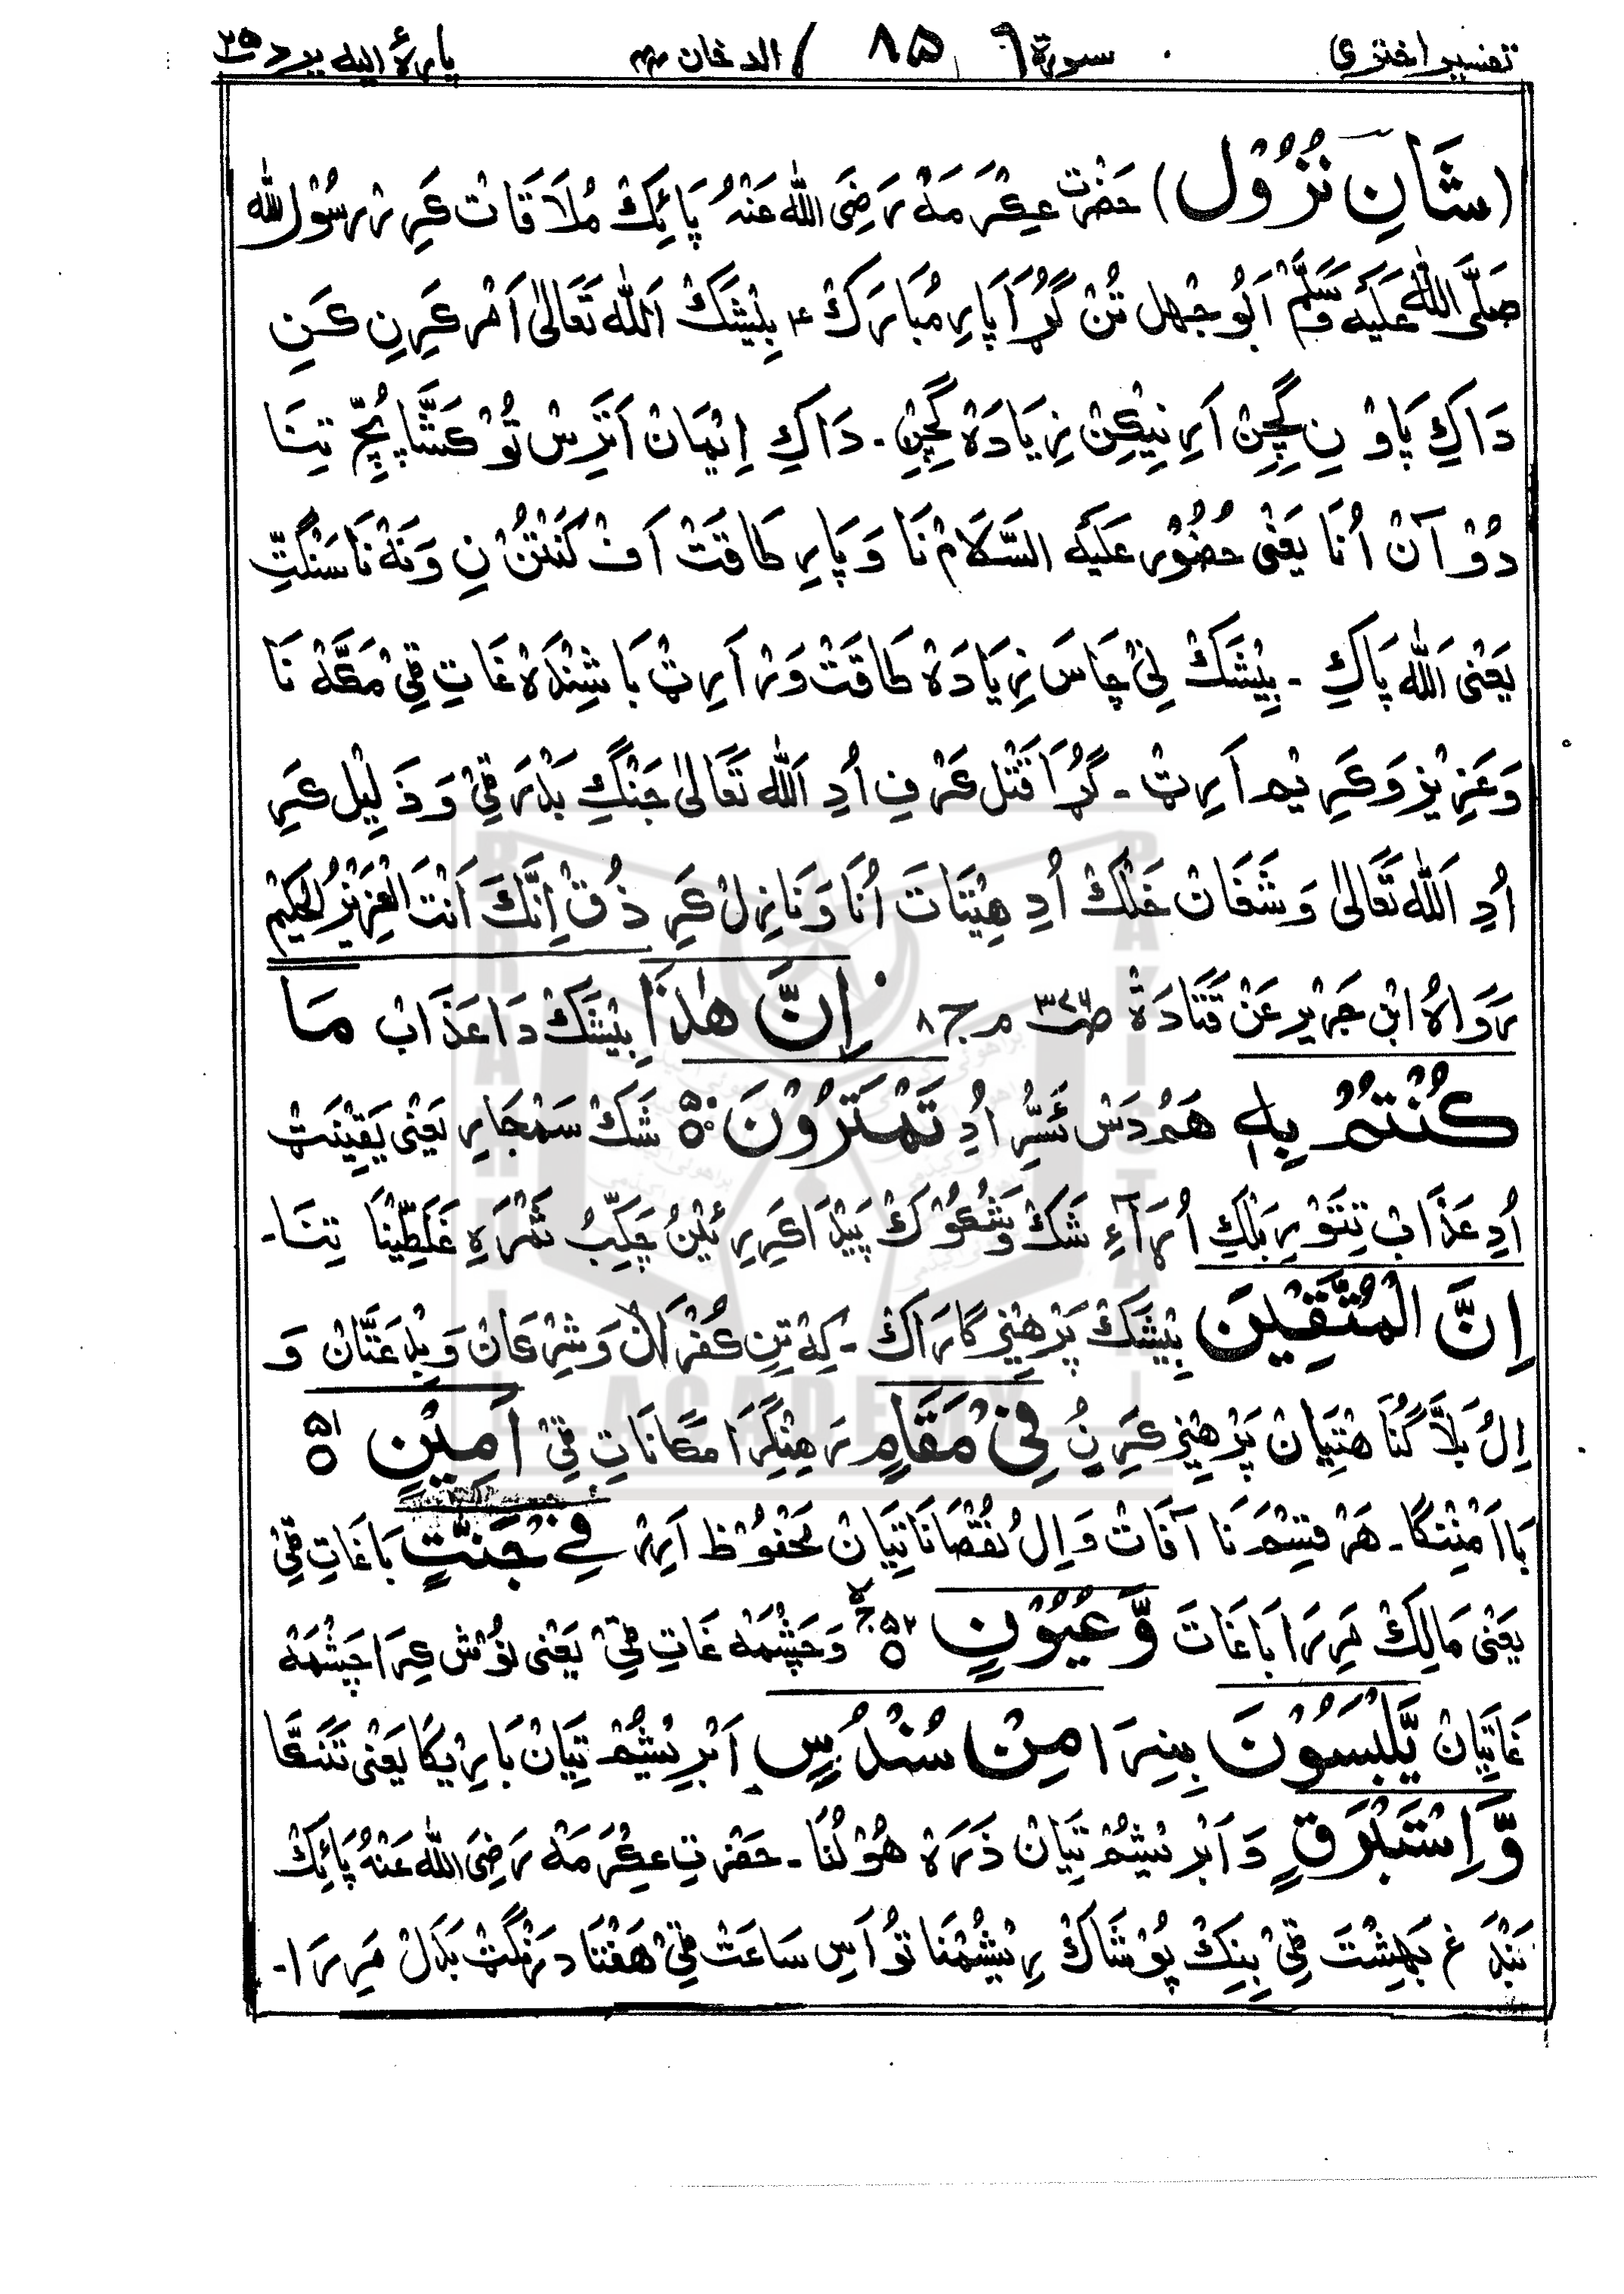 تفسیر اختری سورة ٨٥ الدخان ٤٤ پارہ الیہ یرد ٢٥
(شَانِ نُزُوْل) حَضْرَتِ عِکْرَمَهْ رَضِیَ اللّٰهُ عَنْهُ پَائِکْ مُلَاقَاتْ کَرِرْ رَسُوْلُ اللّٰه
صَلَّی اللّٰهُ عَلَیْهِ وَسَلَّمْ اَبُوجْهل تُنْ گُڑَا پَارِ مُبَارَکْ بِیْشَکْ اَللّٰه تَعَالٰی اَمْر کَرِنِ کَنِ
دَاکِ پَاوْ نِ گِچِنْ اَرِ نِیْکِنْ زِیَادَهْ گِچِنْ۔ دَاکِ اِیْمَانْ اَتَرِسْ تُوْ کَشَّا پُچِّ تِنَا
دُوْ آنْ اُنَا یَعْنٰی حُضُوْر عَلَیْهِ السَّلَامْ نَا وَ پَارِ طَاقَتْ اَفْ کَنْتُنْ نِ وَنَهْ نَا سَنْگَتِّ
یَعْنٰی اَللّٰه پَاکِ ۔ بِیْشَکْ نِیْ چَاسَ زِیَادَهْ طَاقَتْ وَرْ اَرِٹْ بَاشِنْدَهْ غَاتِ ٹِیْ مَکَّهْ نَا
وَ عَزِیْز وَ کَرِیْم اَرِٹْ ۔ گُڑَا قَتْل کَرْفِ اُدِ اَللّٰه تَعَالٰی جَنْگِ بَدْرَ ٹِیْ وَ ذَلِیْل کَرِ
اُدِ اَللّٰه تَعَالٰی وَ شَغَانْ خَلْکْ اُدِ هِیْتَاتَ اُنَا وَ نَازِلْ کَرِ ذُقْ اِنَّکَ اَنْتَ الْعَزِیْزُ الْحَکِیْم
رَوَاهُ ابْن جَرِیْر عَنْ قَتَادَةْ ص ٣٢٦ م ج ٨ اِنَّ هٰذَا بِیْشَکْ دَا عَذَابْ مَا
کُنْتُمْ بِهٖ هَمُ دَسْ ئَسُّرِ اُدِ تَمْتَرُوْنَ ۵۰ شَکْ سَمْجَارِ یَعْنٰی یَقِیْنَٹْ
اُدِ عَذَابْ تِتَوْ رِبَاکِ اُرَآءِ شَکْ وَ شُکُوْکْ پَیْدَا کَرِرِ ئَیْنُ چَکِّبُ ثَمْرَهِ غَلَطِّیْنَا تِنَا۔
اِنَّ الْمُتَّقِیْنَ بِیْشَکْ پَرْهِیْزِ گَارَاکْ ۔ کِهْ تِنِ کُفْرَانْ وَ شِرْکَانْ وَ بِدْعَتَّانْ وَ
اِلُ بَلَّا گُنَا هَتِیَانْ پَرْهِیْز کَرِنُ فِیْ مَقَامٍ رَهِنْگِرَا مَکَانَاتِ ٹِیْ اَمِیْنٍ ۵۱
بَا اَمْنِنْگَا۔ هَرْ قِسْمَ نَا آفَاتْ وَ اِلُ نُقْصَانَاتِیَانْ مَحْفُوْظ اَرِرْ فِیْ جَنّٰتٍ بَاغَاتِ ٹِیْ
یَعْنٰی مَالِکْ مَرِرَا بَاغَاتَ وَّعُیُوْنٍ ۵۲ وَ چَشْمَهْ غَاتِ ٹِیْ یَعْنٰی نُوْش کِرَا چَشْمَهْ
غَاتِیَانْ یَّلْبَسُوْنَ بِنِرَا مِنْ سُنْدُسٍ اَبْرِیْشُمْ تِیَانْ بَارِیْکَا یَعْنٰی تَنَکَّا
وَّاِسْتَبْرَقٍ وَ اَبْرِیْشُمْ تِیَانْ ذَرَهْ هُوْلُنَا۔ حَضْرَتِ عِکْرَمَهْ رَضِیَ اللّٰهُ عَنْهُ پَائِکْ
بَنْدَغ بَهِشْتَ ٹِیْ بِنِکْ پُوْشَاکْ رِیْشُمْنَا تُو اَسِ سَاعَتْ ٹِیْ هَفْتَا دَ رَنْگَٹْ بَدَلْ مَرِرَا۔
BRAHUI
ACADEMY
PAKISTAN